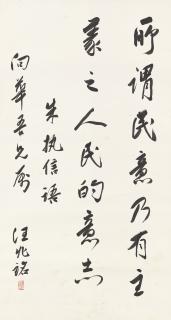 所谓民意乃有主
义之人民的意志
朱执信语
向华吾兄属
汪兆铭